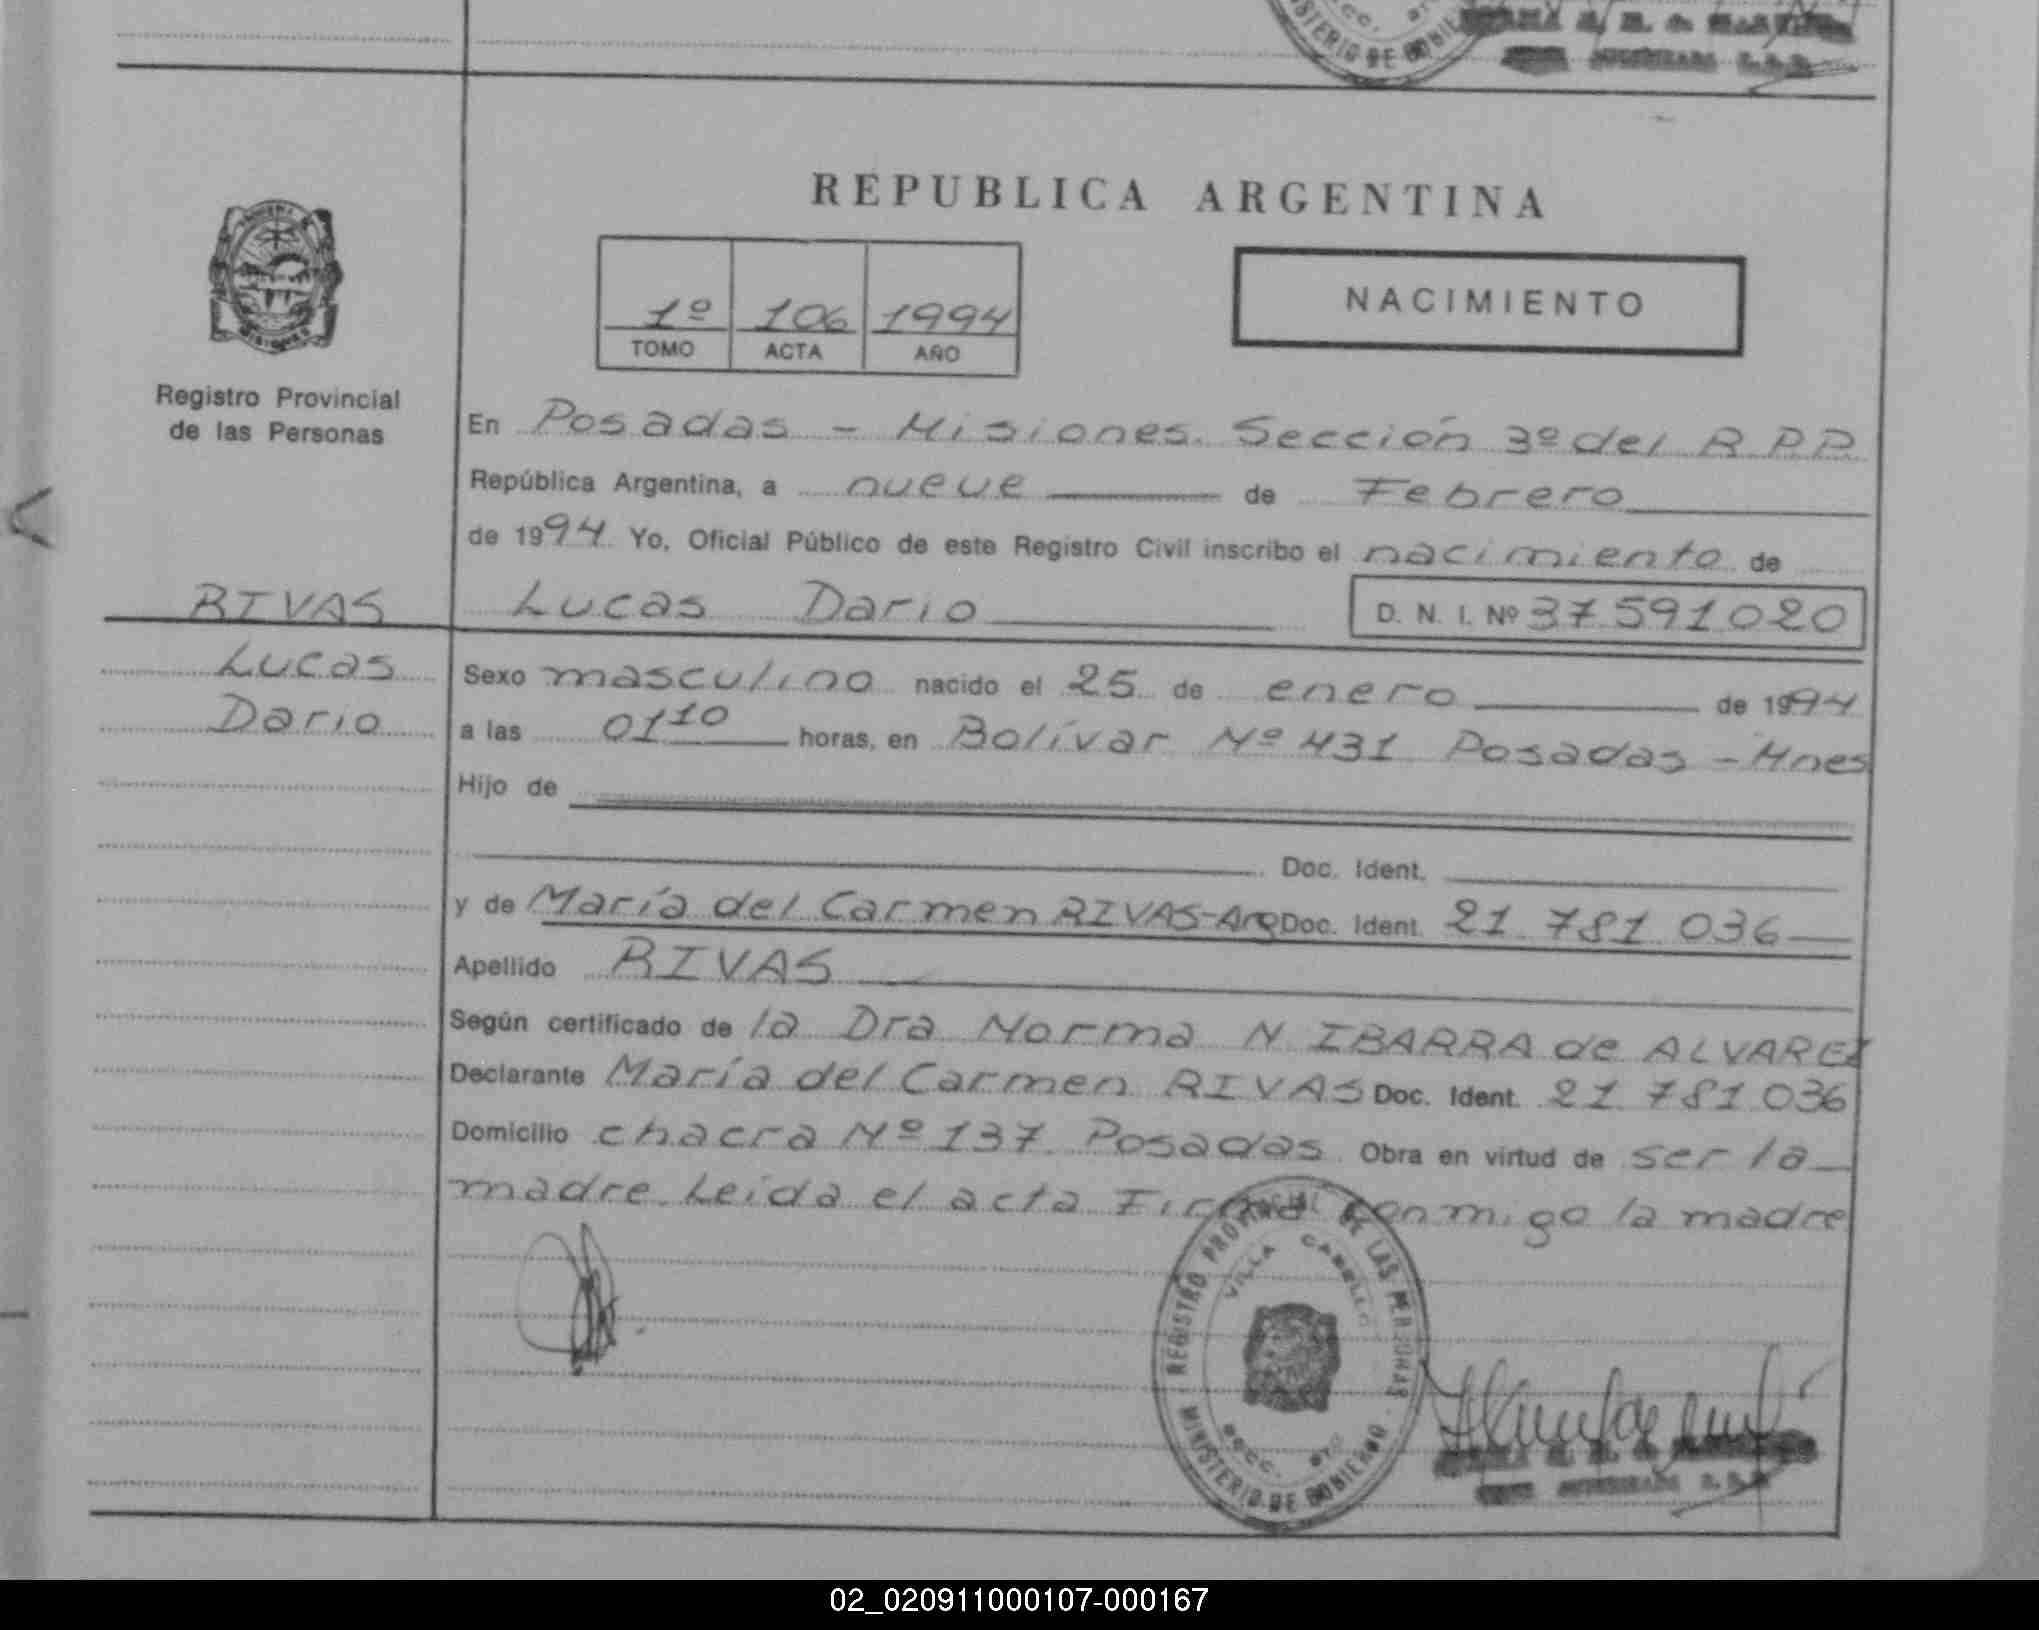 MINISTERIO DE GOBIE
REPUBLICA ARGENTINA
1º 106 1994
TOMO ACTA AÑO
NACIMIENTO
Registro Provincial
de las Personas
En Posadas - Misiones. Sección 3º del R P P
República Argentina, a nueve de Febrero
de 1994 Yo, Oficial Público de este Registro Civil inscribo el nacimiento de
RIVAS
Lucas
Dario
Lucas Dario D. N. I. Nº 37 591 020
Sexo masculino nacido el 25 de enero de 1994
a las 01 10 horas, en Bolívar Nº 431 Posadas - Mnes
Hijo de
Doc. Ident.
y de María del Carmen RIVAS-Arg Doc. Ident. 21 781 036
Apellido RIVAS
Según certificado de la Dra Norma N IBARRA de ALVAREZ
Declarante María del Carmen RIVAS Doc. Ident. 21 781 036
Domicilio chacra Nº 137 Posadas Obra en virtud de ser la
madre Leida el acta Firma conmigo la madre
REGISTRO PROVINCIAL DE LAS PERSONAS
VILLA CABELLO
SECC.
MINISTERIO DE GOBIERNO
02_020911000107-000167